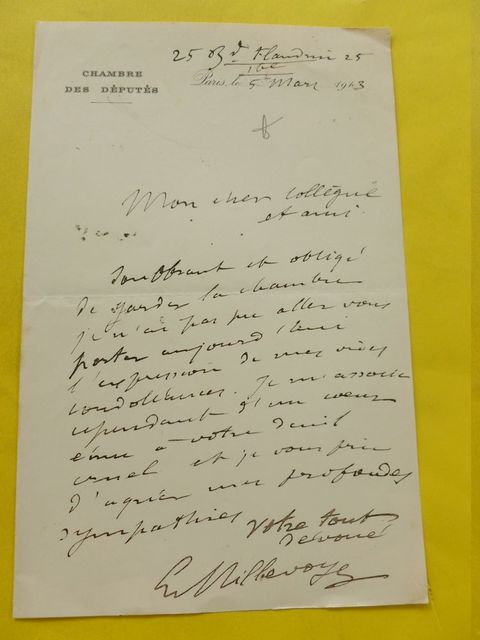 25 Bd Flandrin 25
CHAMBRE
DES DÉPUTÉS
Paris, le 5 Mars 1903
Mon cher collègue
et ami
Souffrant et obligé
de garder la chambre
je n'ai pas pu aller vous
porter aujourd'hui
l'expression de mes vives
condoléances. Je m'associe
cependant d'un coeur
ému à votre deuil
cruel et je vous prie
d'agréer mes profondes
sympathies
Votre tout
dévoué
Millevoye